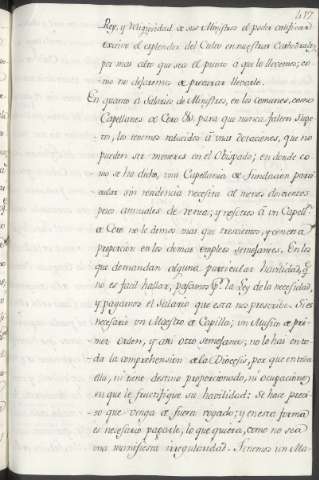 417
Rey, y Religiosidad de sus Ministros el poder
excesivo el esplendor del Culto en nuestras Cathedrales,
por mas alto que sea el punto à que lo llevemos; co-
mo no dejaremos de procurar llevarle.
En quanto à Salario de Ministros, en los comunes, como
Capellanes de Coro &c. para que nunca falten Suge-
tos, los tenemos reducidos à unas dotaciones, que no
pueden ser menores en el Obispado; en donde co-
mo se ha dicho, una Capellania de fundacion parti-
cular sin residencia necesita al menos doscientos
pesos annuales de renta; y respecto à un Capell.n
de Coro no le damos mas que trescientos, y con esta
proporcion en los demas empleos semejantes. En los
que demandan alguna particular habilidad, q.
no es facil hallar, pasamos p.r la Ley de la necesidad,
y pagamos el Salario que esta nos prescribe. Si es
necesario un Maestro de Capilla; un Musico de pri-
mer orden, y asi otro semejante; no lo hai en to-
da la comprehension de la Diocesis, por que en toda
ella, ni tiene destino proporcionado, ni ocupacion,
en que le fructifique su habilidad: Se hace preci-
so que venga de fuera rogado; y en esta forma
es necesario pagarle, lo que quiera, como no sea
una manifiesta irregularidad. Si tenemos un Ma-